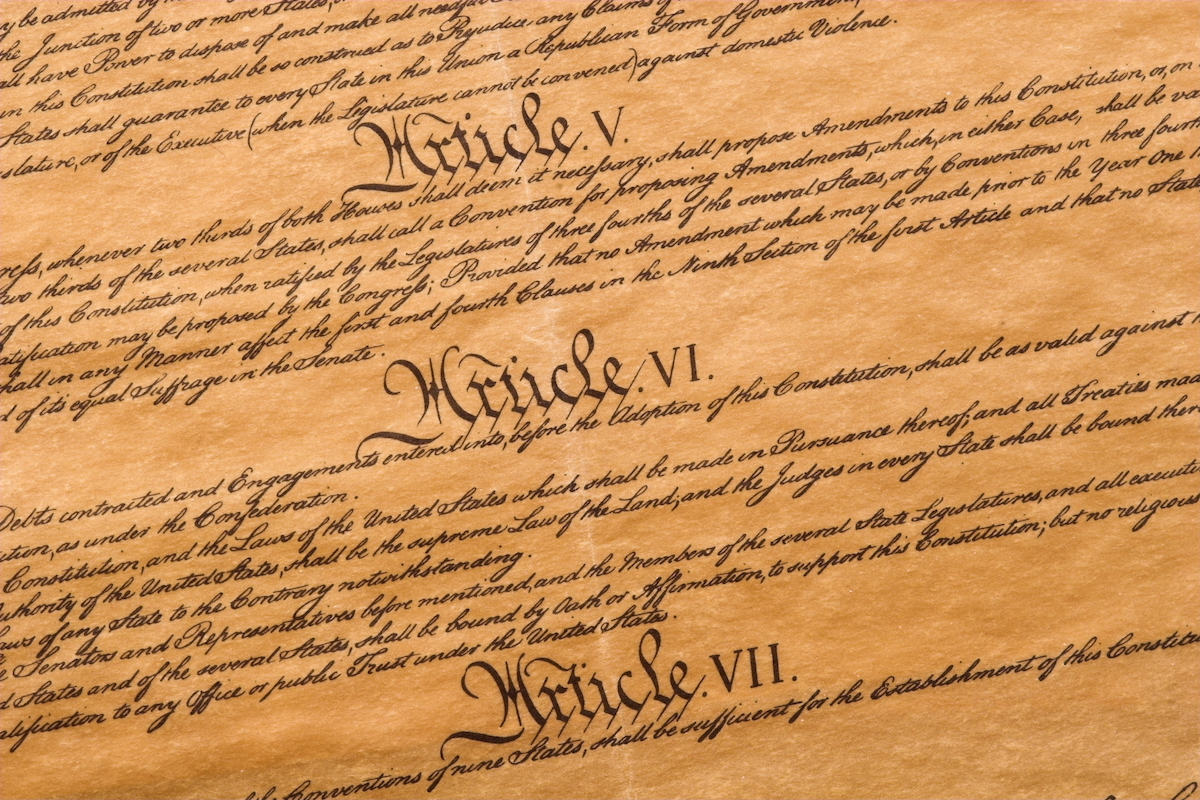 y be admitted by
the Junction of two or more States,
all have Power to dispose of and make all needful
in this Constitution shall be so construed as to Prejudice any Claims of
States shall guarantee to every State in this Union a Republican Form of Government,
islature, or of the Executive (when the Legislature cannot be convened) against domestic Violence.
Article. V.
ress, whenever two thirds of both Houses shall deem it necessary, shall propose Amendments to this Constitution, or, on
two thirds of the several States, shall call a Convention for proposing Amendments, which, in either Case, shall be va
of this Constitution, when ratified by the Legislatures of three fourths of the several States, or by Conventions in three fourt
atification may be proposed by the Congress; Provided that no Amendment which may be made prior to the Year One
hall in any Manner affect the first and fourth Clauses in the Ninth Section of the first Article and that no State
d of it's equal Suffrage in the Senate.
Article. VI.
Debts contracted and Engagements entered into, before the Adoption of this Constitution, shall be as valid against
ution, as under the Confederation.
Constitution, and the Laws of the United States which shall be made in Pursuance thereof; and all Treaties mad
uthority of the United States, shall be the supreme Law of the Land; and the Judges in every State shall be bound ther
aws of any State to the Contrary notwithstanding.
e Senators and Representatives before mentioned, and the Members of the several State Legislatures, and all executi
d States and of the several States, shall be bound by Oath or Affirmation, to support this Constitution; but no religious
alification to any Office or public Trust under the United States.
Article. VII.
Conventions of nine States, shall be sufficient for the Establishment of this Constitu